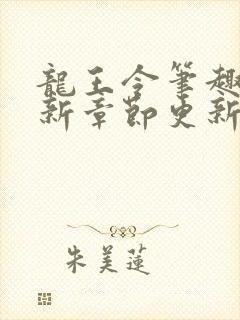 龍王令筆趣
新章節更新
朱美蓮